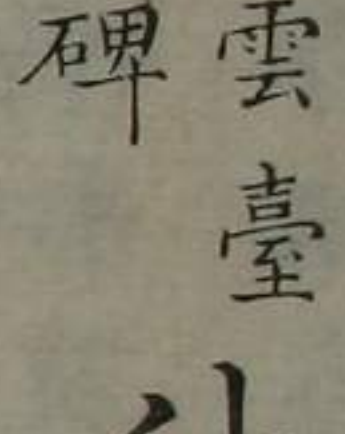 雲臺
碑